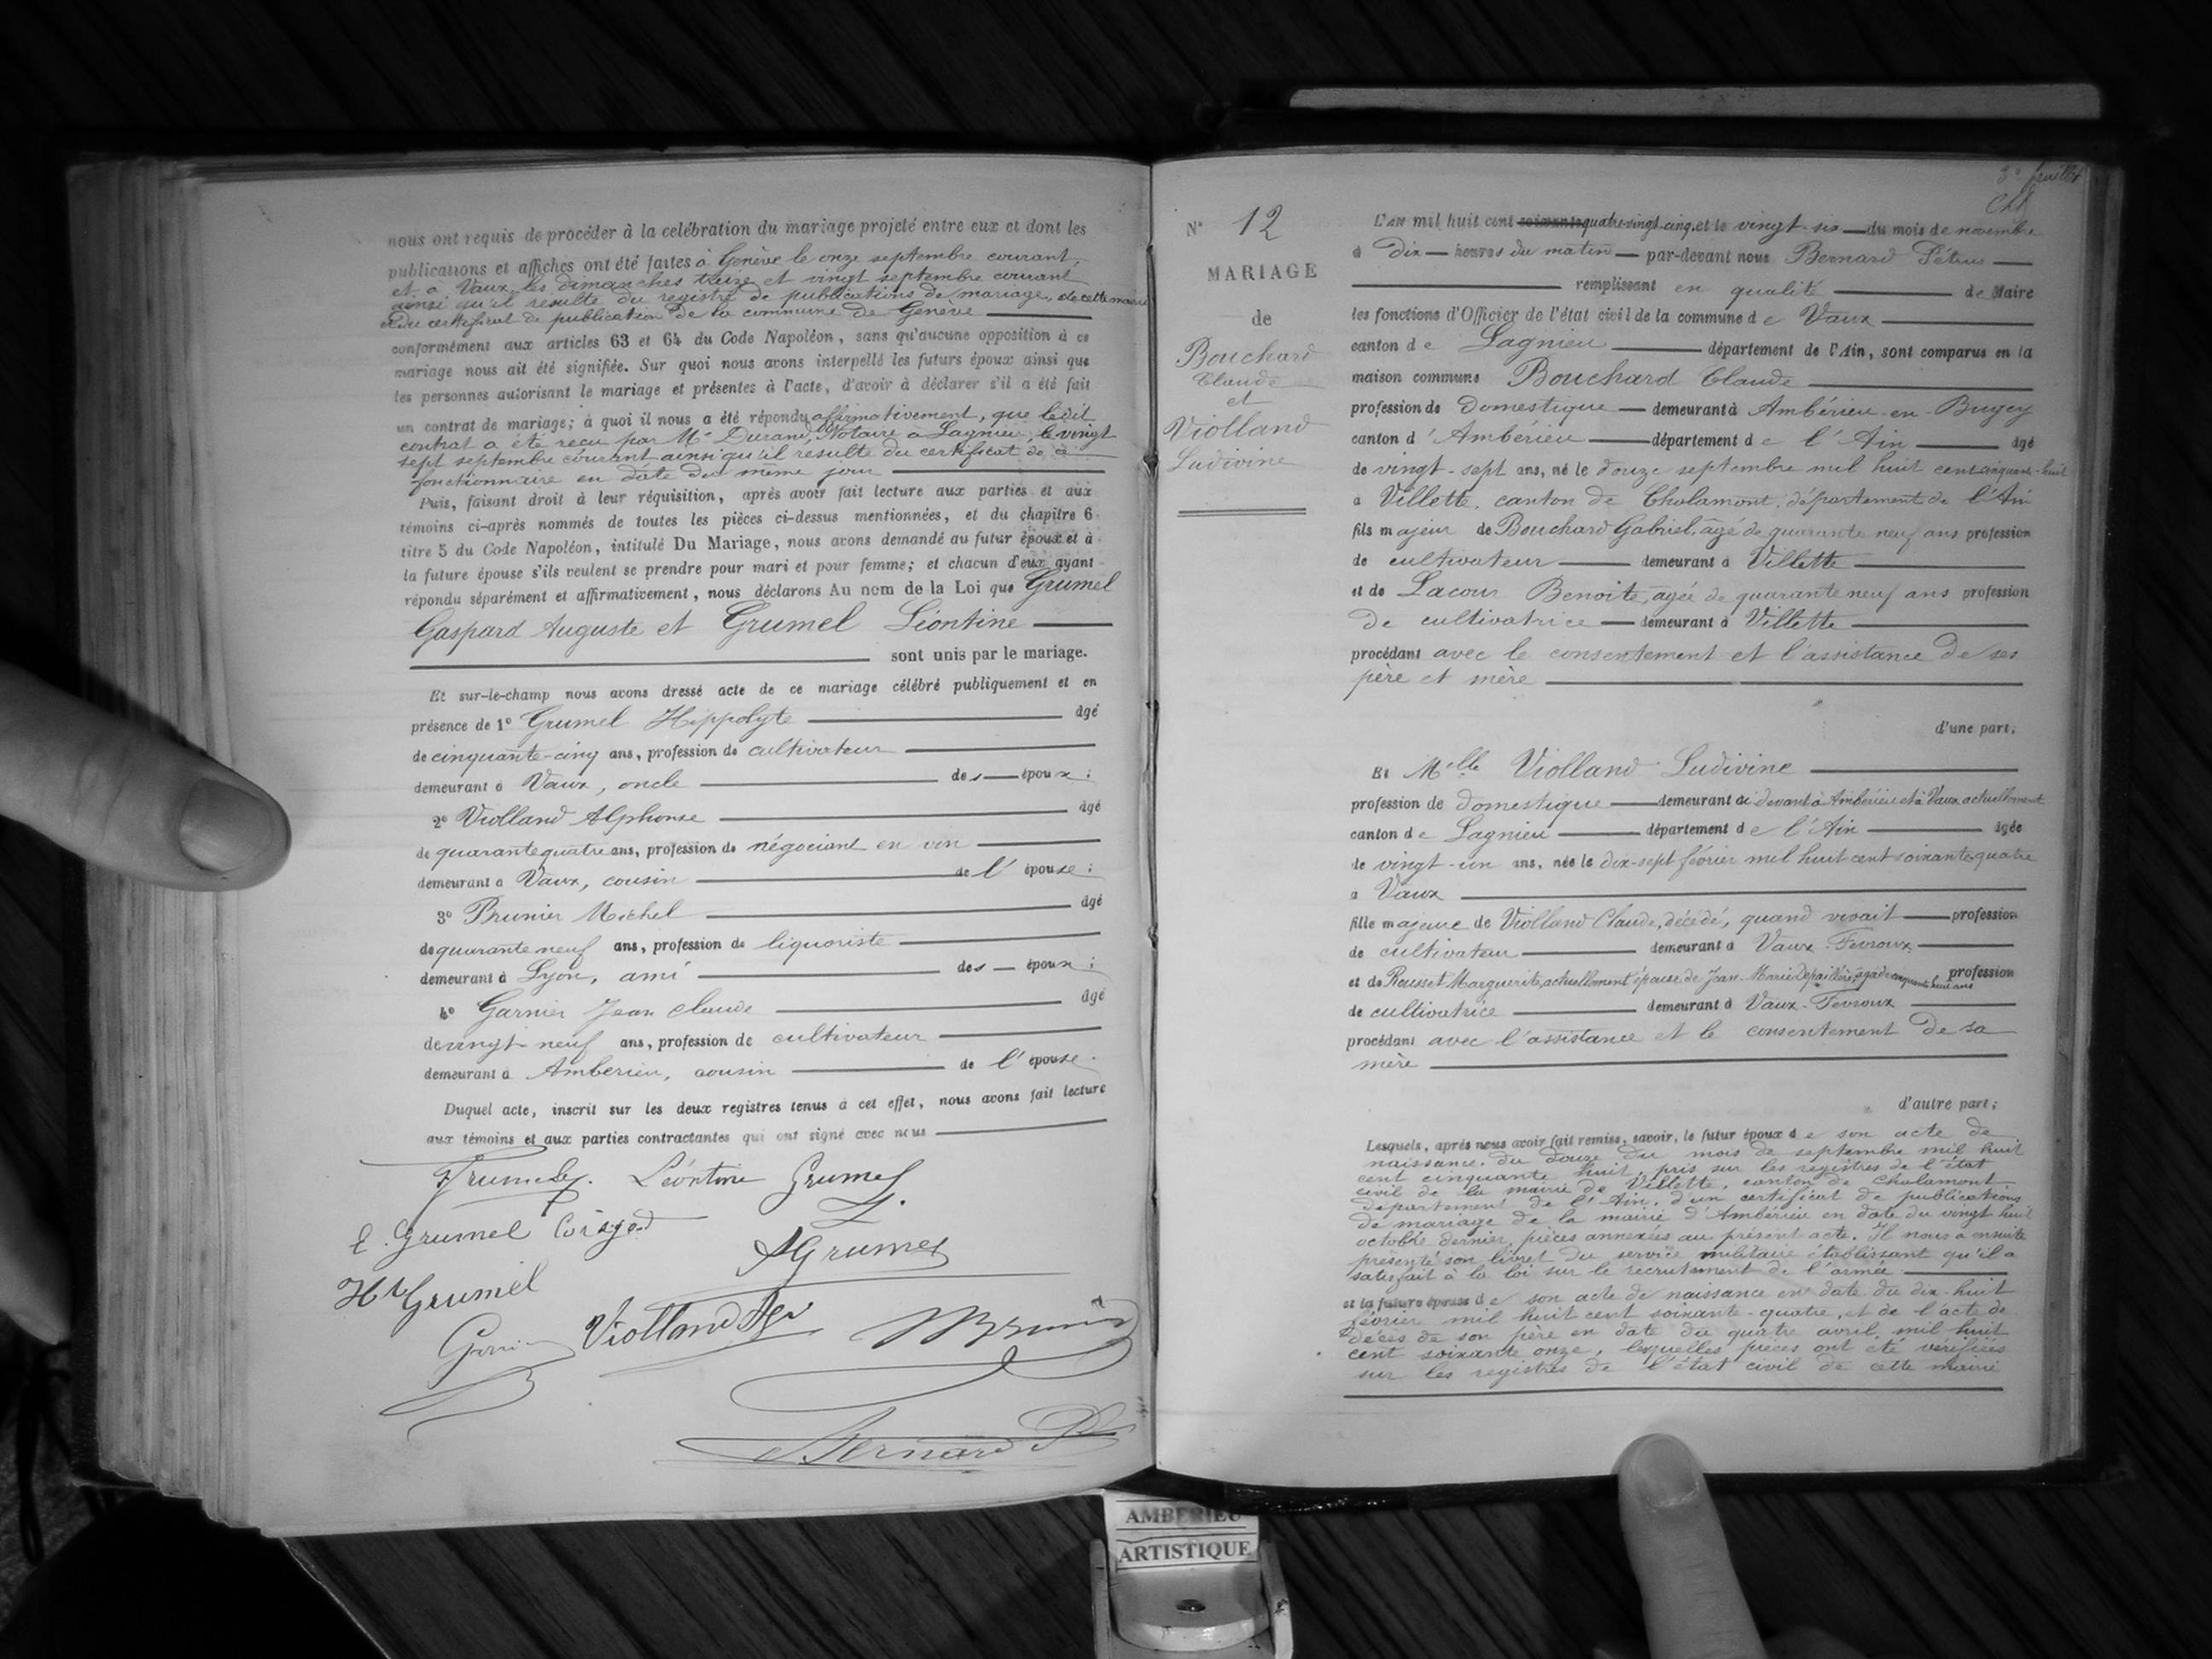 nous ont requis de procéder à la celébration du mariage projeté entre eux et dont les
publications et affiches ont été faites à Genève le onze septembre courant,
et a Vaux les dimanches treize et vingt septembre courant
ainsi qu'il resulte du registre de publications de mariage, de cette mairie
et du certificat de publication de la commune de Genève
conformément aux articles 63 et 64 du Code Napoléon, sans qu'aucune opposition à ce
mariage nous ait été signifiée. Sur quoi nous avons interpellé les futurs époux ainsi que
les personnes autorisant le mariage et présentes à l'acte, d'avoir à déclarer s'il a été fait
un contrat de mariage; à quoi il nous a été répondu affirmativement, que ledit
contrat a été reçu par Me Durand, Notaire a Lagnieu, le vingt
sept septembre courant ainsi qu'il resulte du certificat de ce
fonctionnaire en date du même jour
Puis, faisant droit à leur réquisition, après avoir fait lecture aux parties et aux
témoins ci-après nommés de toutes les pièces ci-dessus mentionnées, et du chapitre 6
titre 5 du Code Napoléon, intitulé Du Mariage, nous avons demandé au futur époux et à
la future épouse s'ils veulent se prendre pour mari et pour femme; et chacun d'eux ayant
répondu séparément et affirmativement, nous déclarons Au nom de la Loi que Grumel
Gaspard Auguste et Grumel Léontine
sont unis par le mariage.
Et sur-le-champ nous avons dressé acte de ce mariage célébré publiquement et en
présence de 1° Grumel Hippolyte âgé
de cinquante-cinq ans, profession de cultivateur
demeurant à Vaux, oncle des époux;
2° Violland Alphonse âgé
de quarante quatre ans, profession de négociant en vin
demeurant à Vaux, cousin de l'épouse;
3° Brunier Michel âgé
de quarante neuf ans, profession de liquoriste
demeurant à Lyon, ami des époux;
4° Garnier Jean Claude âgé
de vingt-neuf ans, profession de cultivateur
demeurant à Amberieu, cousin de l'épouse.
Duquel acte, inscrit sur les deux registres tenus à cet effet, nous avons fait lecture
aux témoins et aux parties contractantes qui ont signé avec nous
Léontine Grumel
E. Grumel
AGrumel
Hte Grumel
Violland
Bernard
3e feuillet
N° 12
MARIAGE
de
Bouchard
Claude
et
Violland
Ludivine
L'an mil huit cent soixante quatre-vingt-cinq, et le vingt-six du mois de novembre
à Dix heures du matin par-devant nous Bernard Pétrus
remplissant en qualité de Maire
les fonctions d'Officier de l'état civil de la commune de Vaux
canton de Lagnieu département de l'Ain, sont comparus en la
maison commune Bouchard Claude
profession de Domestique demeurant à Ambérieu-en-Bugey
canton d'Ambérieu département de l'Ain âgé
de vingt-sept ans, né le douze septembre mil huit cent cinquante-huit
à Villette, canton de Chalamont, département de l'Ain
fils majeur de Bouchard Gabriel, âgé de quarante neuf ans profession
de cultivateur demeurant à Villette
et de Lacour Benoite, agée de quarante neuf ans profession
de cultivatrice demeurant à Villette
procédant avec le consentement et l'assistance de ses
père et mère
d'une part;
Et Melle Violland Ludivine
profession de domestique demeurant ci devant à Ambérieu et à Vaux actuellement
canton de Lagnieu département de l'Ain âgée
de vingt-un ans, née le dix-sept février mil huit cent soixante quatre
à Vaux
fille majeure de Violland Claude, décédé, quand vivait profession
de cultivateur demeurant à Vaux-Fevroux
et de Rousset Marguerite, actuellement épouse de Jean-Marie âgée de cinquante huit ans profession
de cultivatrice demeurant à Vaux-Fevroux
procédant avec l'assistance et le consentement de sa
mère
d'autre part;
Lesquels, après nous avoir fait remise, savoir, le futur époux de son acte de
naissance, du douze du mois de septembre mil huit
cent cinquante huit, pris sur les registres de l'état
civil de la mairie de Villette, canton de Chalamont
département de l'Ain, d'un certificat de publications
de mariage de la mairie d'Ambérieu en date du vingt huit
octobre dernier, pièces annexées au présent acte. Il nous a ensuite
présenté son livret du service militaire établissant qu'il a
satisfait à la loi sur le recrutement de l'armée
et la future épouse de son acte de naissance en date du dix-huit
février mil huit cent soixante-quatre, et de l'acte de
décès de son père en date du quatre avril mil huit
cent soixante onze, lesquelles pièces ont été vérifiées
sur les registres de l'état civil de cette mairie
AMBERIEU
ARTISTIQUE